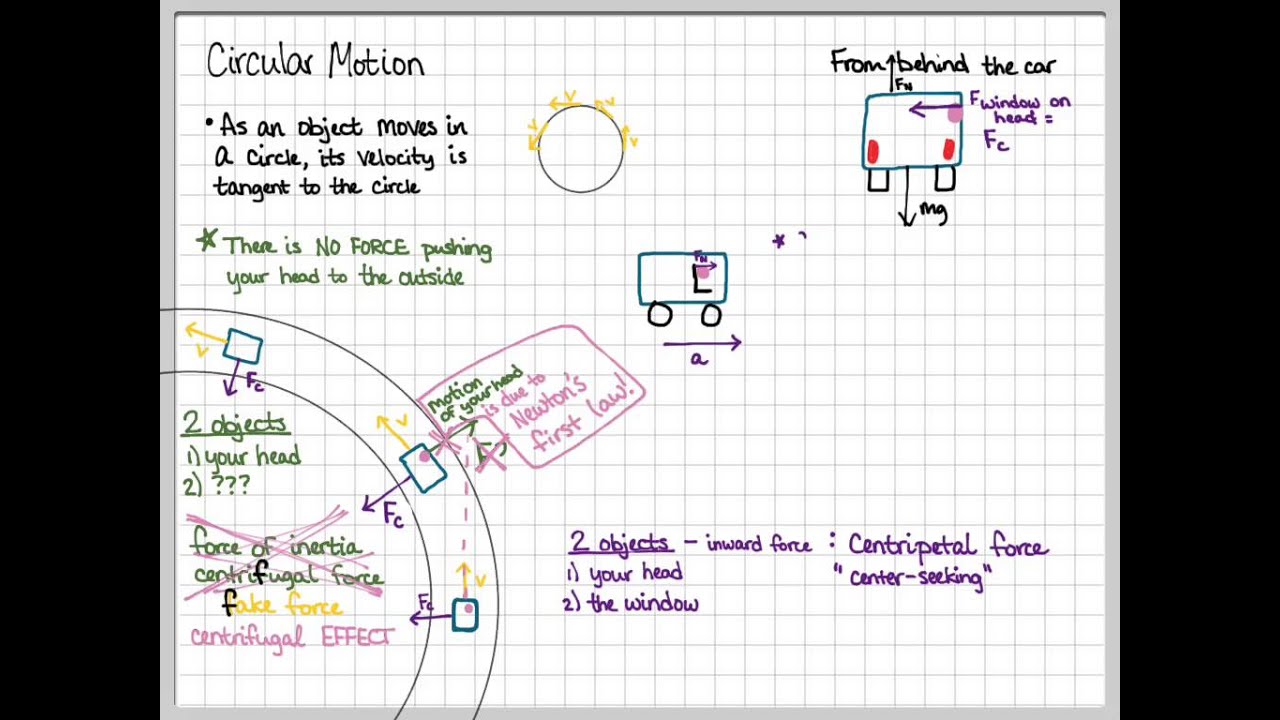 Circular Motion
• As an object moves in
a circle, its velocity is
tangent to the circle
v
v
v
v
From behind the car
FN
Fwindow on
head =
Fc
mg
* There is NO FORCE pushing
your head to the outside
FN
a
*
v
Fc
2 objects
1) your head
2) ???
v
Fc
motion
of your head
is due to
Newton's
first law!
force of inertia
centrifugal force
fake force
centrifugal EFFECT
v
Fc
2 objects – inward force : Centripetal force
1) your head
"center-seeking"
2) the window